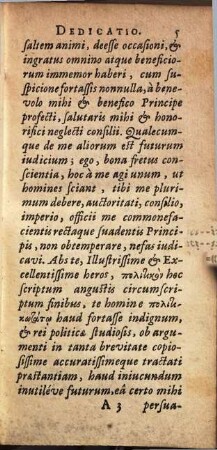 DEDICATIO. 5
saltem animi, deesse occasioni, &
ingratus omnino atque beneficio-
rum immemor haberi, cum su-
spicione fortassis nonnulla, à be-
nevolo mihi & benefico Principe
profecti, salutaris mihi & hono-
rifici neglecti consilii. Qualecum-
que de me aliorum est futurum
iudicium; ego, bona fretus con-
scientia, hoc à me agi unum, ut
homines sciant, tibi me pluri-
mum debere, auctoritati, consilio,
imperio, officii me commonefa-
cientis rectaque suadentis Princi-
pis, non obtemperare, nefas iudi-
cavi. Abs te, Illustrissime & Ex-
cellentissime heros, πολιτικὸν hoc
scriptum angustis circumscri-
ptum finibus, te homine πολιτι-
κωτάτῳ haud fortasse indignum,
& rei politicæ studiosis, ob argu-
menti in tanta brevitate copio-
sissime accuratissimeque tractati
præstantiam, haud iniucundum
inutiléve futurum, eá certo mihi
A 3 persua-